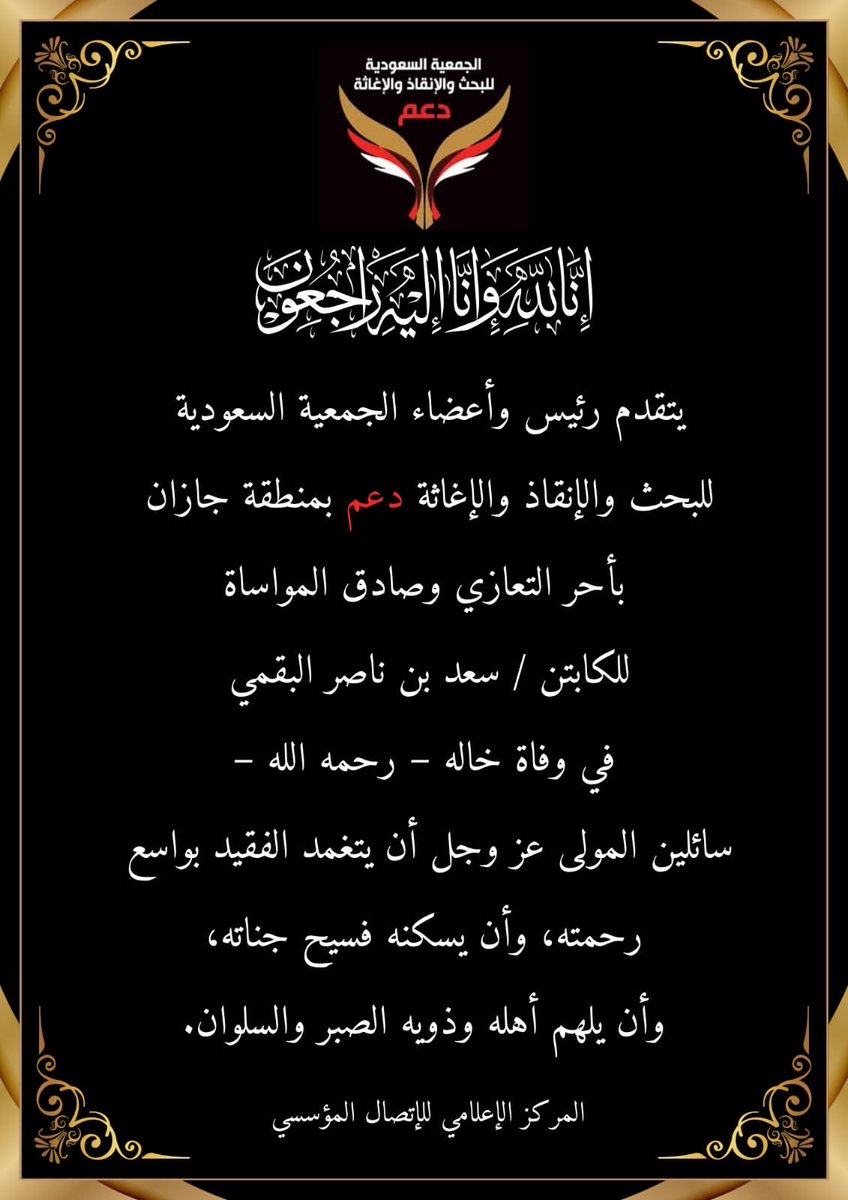 الجمعية السعودية
للبحث والإنقاذ والإغاثة
دعم
إِنَّا لِلَّهِ وَإِنَّا إِلَيْهِ رَاجِعُونَ
يتقدم رئيس وأعضاء الجمعية السعودية
للبحث والإنقاذ والإغاثة دعم بمنطقة جازان
بأحر التعازي وصادق المواساة
للكابتن / سعد بن ناصر البقمي
في وفاة خاله – رحمه الله –
سائلين المولى عز وجل أن يتغمد الفقيد بواسع
رحمته، وأن يسكنه فسيح جناته،
وأن يلهم أهله وذويه الصبر والسلوان.
المركز الإعلامي للإتصال المؤسسي